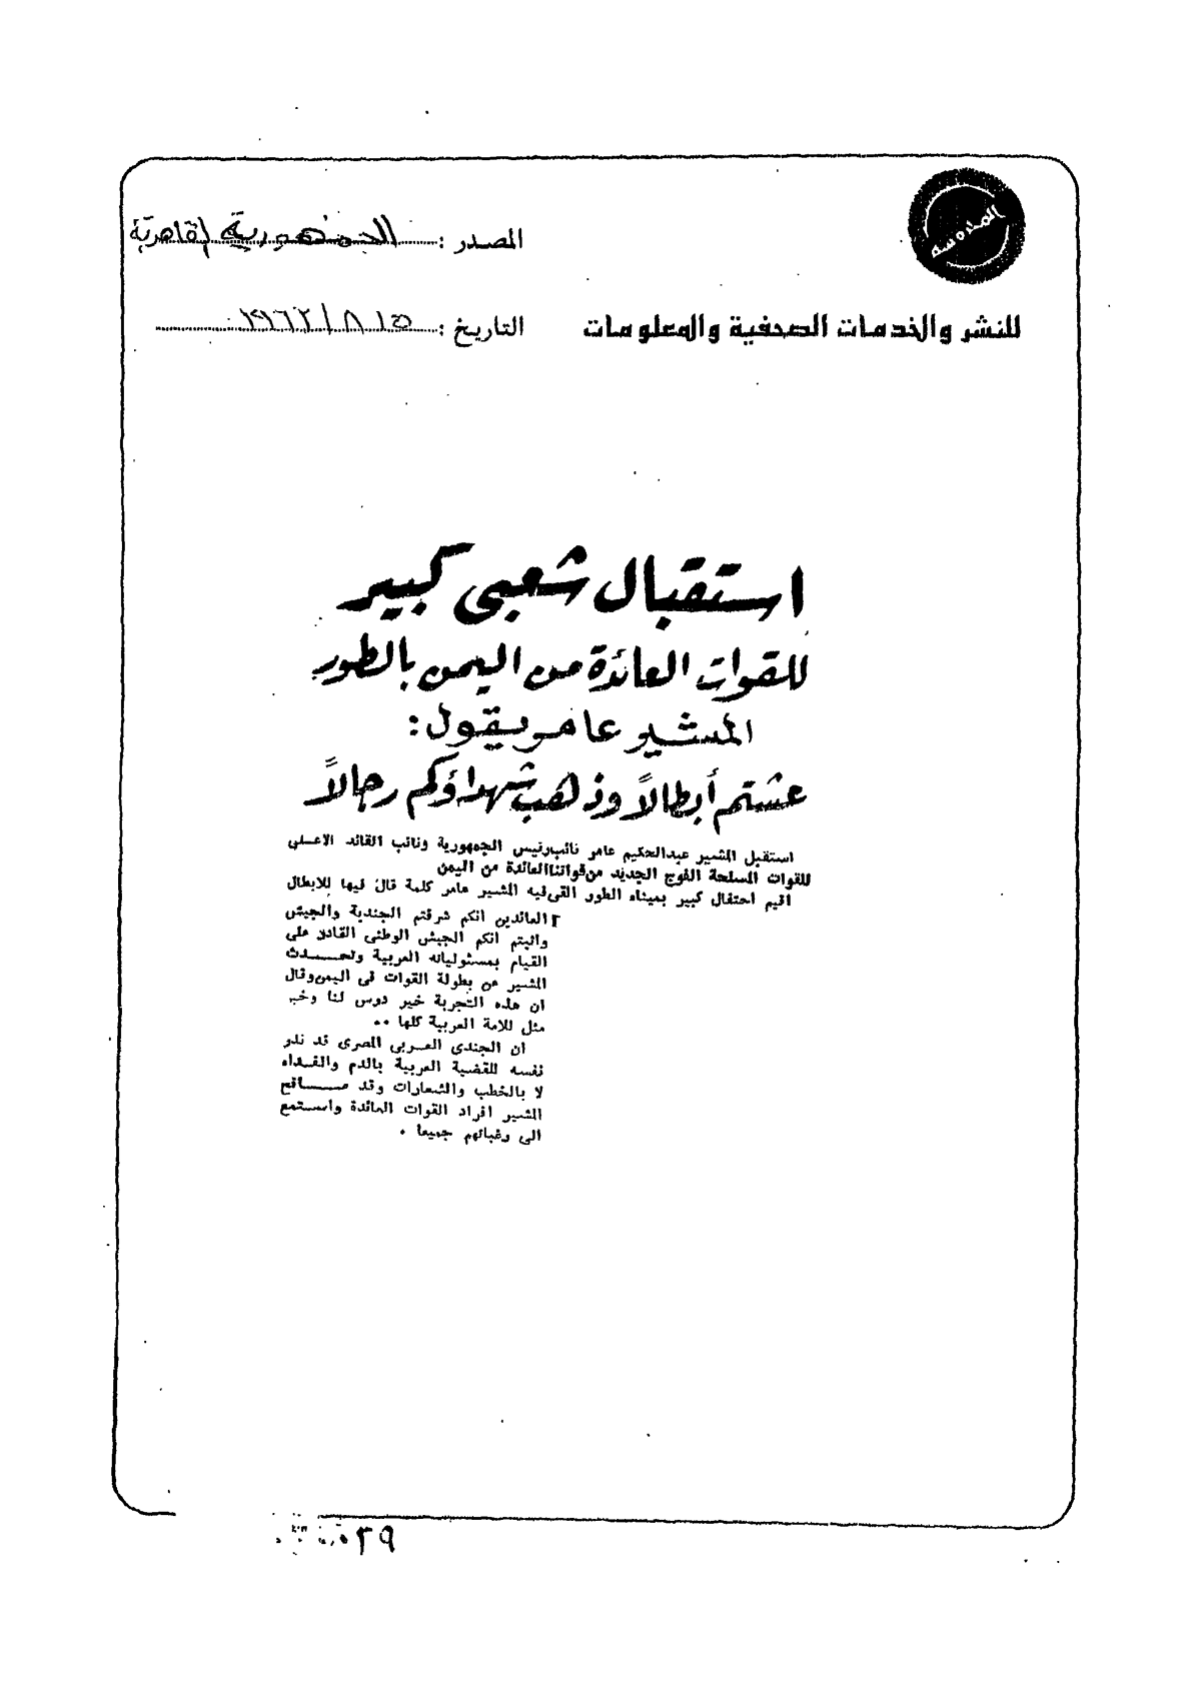 المصدر : الجمهورية القاهرية
للنشر والخدمات الصحفية والمعلومات
التاريخ :
استقبال شعبى كبير
للقوات العائدة من اليمن بالطور
المشير عامر يقول :
عشتم أبطالاً وذهب شهداؤكم رجالاً
استقبل المشير عبدالحكيم عامر نائب رئيس الجمهورية ونائب القائد الاعلى
للقوات المسلحة الفوج الجديد من قواتنا العائدة من اليمن
اقيم احتفال كبير بميناء الطور القى فيه المشير عامر كلمة قال فيها للابطال
العائدين انكم شرفتم الجندية والجيش
واثبتم انكم الجيش الوطنى القادر على
القيام بمسئولياته العربية وتحدث
المشير عن بطولة القوات فى اليمن وقال
ان هذه التجربة خير دوس لنا وخير
مثل للامة العربية كلها ..
ان الجندى العربى المصرى قد نذر
نفسه للقضية العربية بالدم والفداء
لا بالخطب والشعارات وقد صافح
المشير افراد القوات العائدة واستمع
الى رغباتهم جميعا .